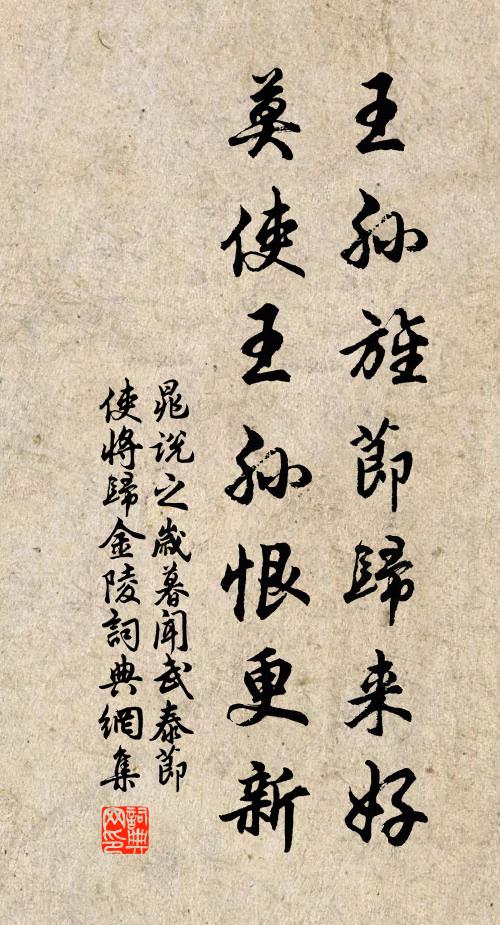 王孫旌節歸来好
莫使王孫恨更新
晁說之歲暮聞武泰節
使將歸金陵詞典網集
詞典网印